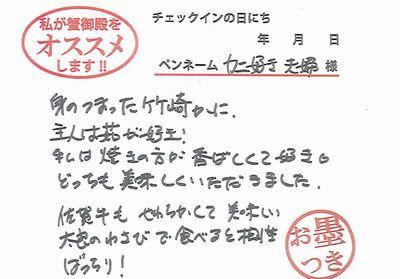 私が蟹御殿を
オススメ
します!!
チェックインの日にち
年 月 日
ペンネーム カニ好き夫婦 様
身のつまった竹崎かに、
主人は茹が好き!
私は焼きの方が香ばしくて好き。
どっちも美味しくいただきました。
佐賀牛も やわらかくて 美味しい
大色のわさびで食べると相性
ばっちり!
お墨つき